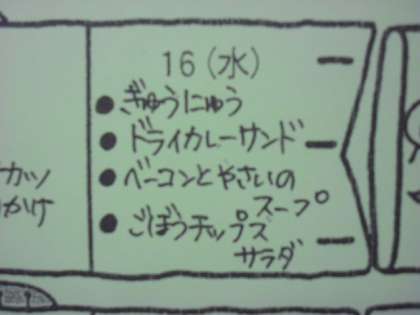 16(水)
●ぎゅうにゅう
●ドライカレーサンド
●ベーコンとやさいの
スープ
●ごぼうチップス
サラダ
カツ
かけ